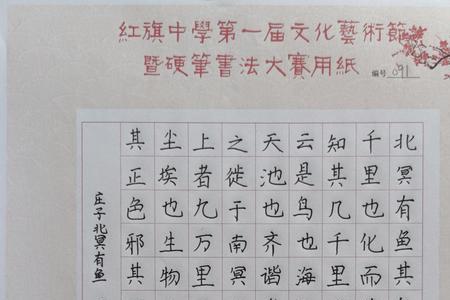 红旗中學第一届文化藝術節
暨硬筆書法大賽用紙
编号 091
北冥有鱼其
千里也化而
知其几千里
云是鸟也海
天池也齐谐
之徙于南冥
上者九万里
尘埃也生物
其正色邪其
庄子北冥有鱼